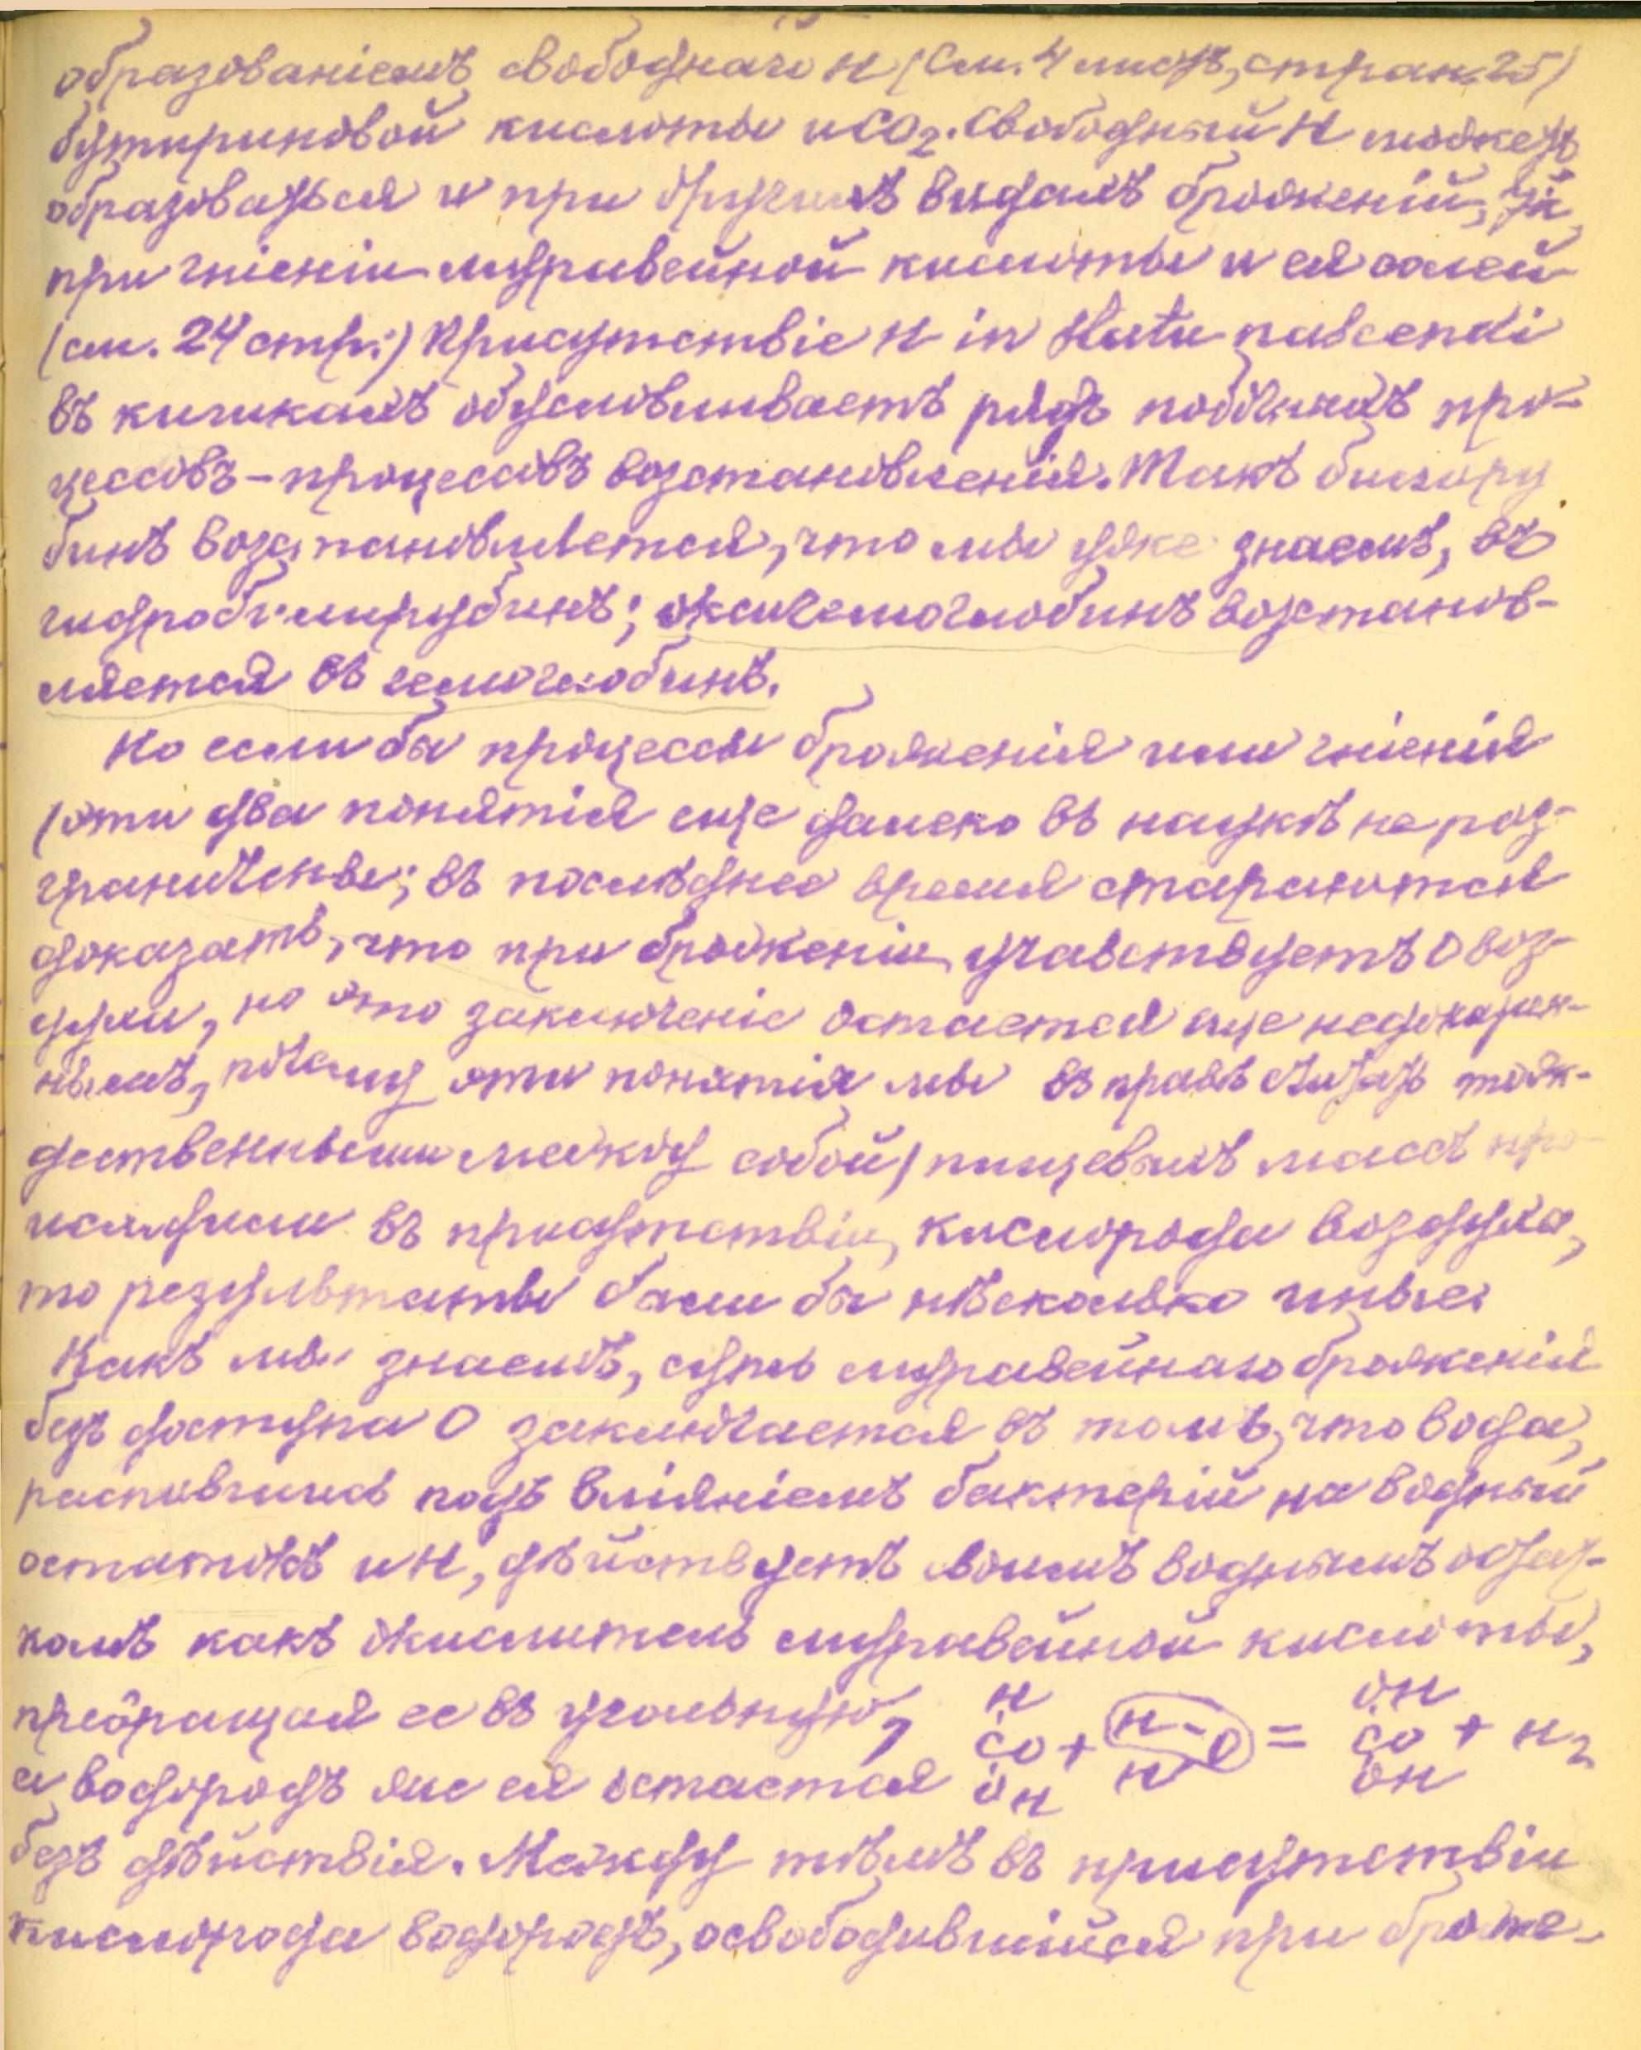 образованіемъ свободнаго H (См. 4 листъ, стран. 25)
бутириновой кислоты и CO2. Свободный H можетъ
образоваться и при другихъ видахъ броженій,
при гніеніи муравейной кислоты и ея солей
(см. 24 стр.) Присутствіе H in statu nascendi
въ кишкахъ обусловливаетъ рядъ побочныхъ про-
цессовъ – процессовъ возстановленія. Такъ билиру
бинъ возстановляется, что мы уже знаемъ, въ
гидробилирубинъ; оксигемоглобинъ возстанов-
ляется въ гемоглобинъ.
Но если бы процессы броженія или гніенія
(эти два понятія еще далеко въ наукѣ не раз-
граничены; въ послѣднее время стараются
доказать, что при броженіи учавствуетъ O воз-
духа, но это заключеніе остается еще недоказан-
нымъ, почему эти понятія мы въ правѣ считать тож-
дественными между собой) пищевыхъ массъ про-
исходили въ присутствіи кислорода воздуха,
то результаты были бы нѣсколько иные.
Какъ мы знаемъ, суть муравейнаго броженія
безъ доступа O заключается въ томъ, что вода,
распавшись подъ вліяніемъ бактерій на водный
остатокъ и H, дѣйствуетъ своимъ воднымъ остат-
комъ какъ окислитель муравейной кислоты,
преобращая ее въ угольную,
а водородъ же ея остается
H
CO + H – O = CO + H2
OH H
OH
OH
безъ дѣйствія. Между тѣмъ въ присутствіи
кислорода водородъ, освободившійся при броже-